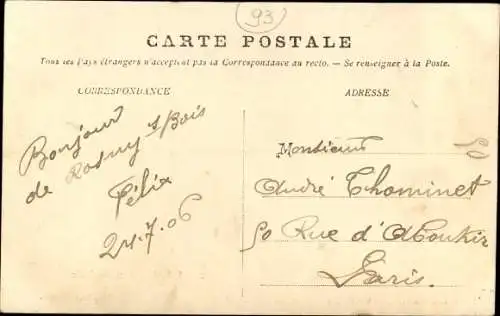 93
CARTE POSTALE
Tous les Pays étrangers n'acceptent pas la Correspondance au recto. — Se renseigner à la Poste.
CORRESPONDANCE
ADRESSE
Bonjour
de Rosny s/Bois
Félix
24.7.06
Monsieur
André Thominet
50 Rue d'Aboukir
Paris.